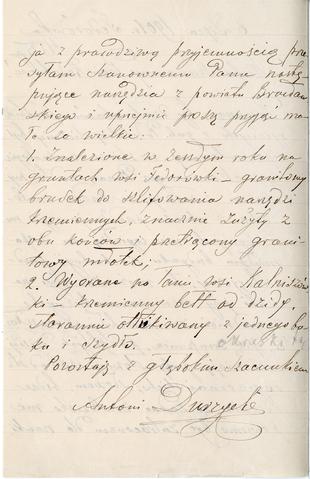 ja z prawdziwą przyjemnością prze
syłam Szanownemu Panu nastę
pujące narzędzia z powiatu
skiego i uprzejmie proszę przyjąć ma
łe za wielkie:
1. Znalezione w zeszłym roku na
gruntach wsi Fedorówki - granitowy
brusek do szlifowania narzędzi
krzemiennych, znacznie zużyty z
obu końców i przełączony grani
towy młotek;
2. Wyorane na łanu wsi
ki - krzemienny bełt od dzidy,
starannie z jednego bo
ku i szydło.
Pozostaję z głębokim szacunkiem
Antoni